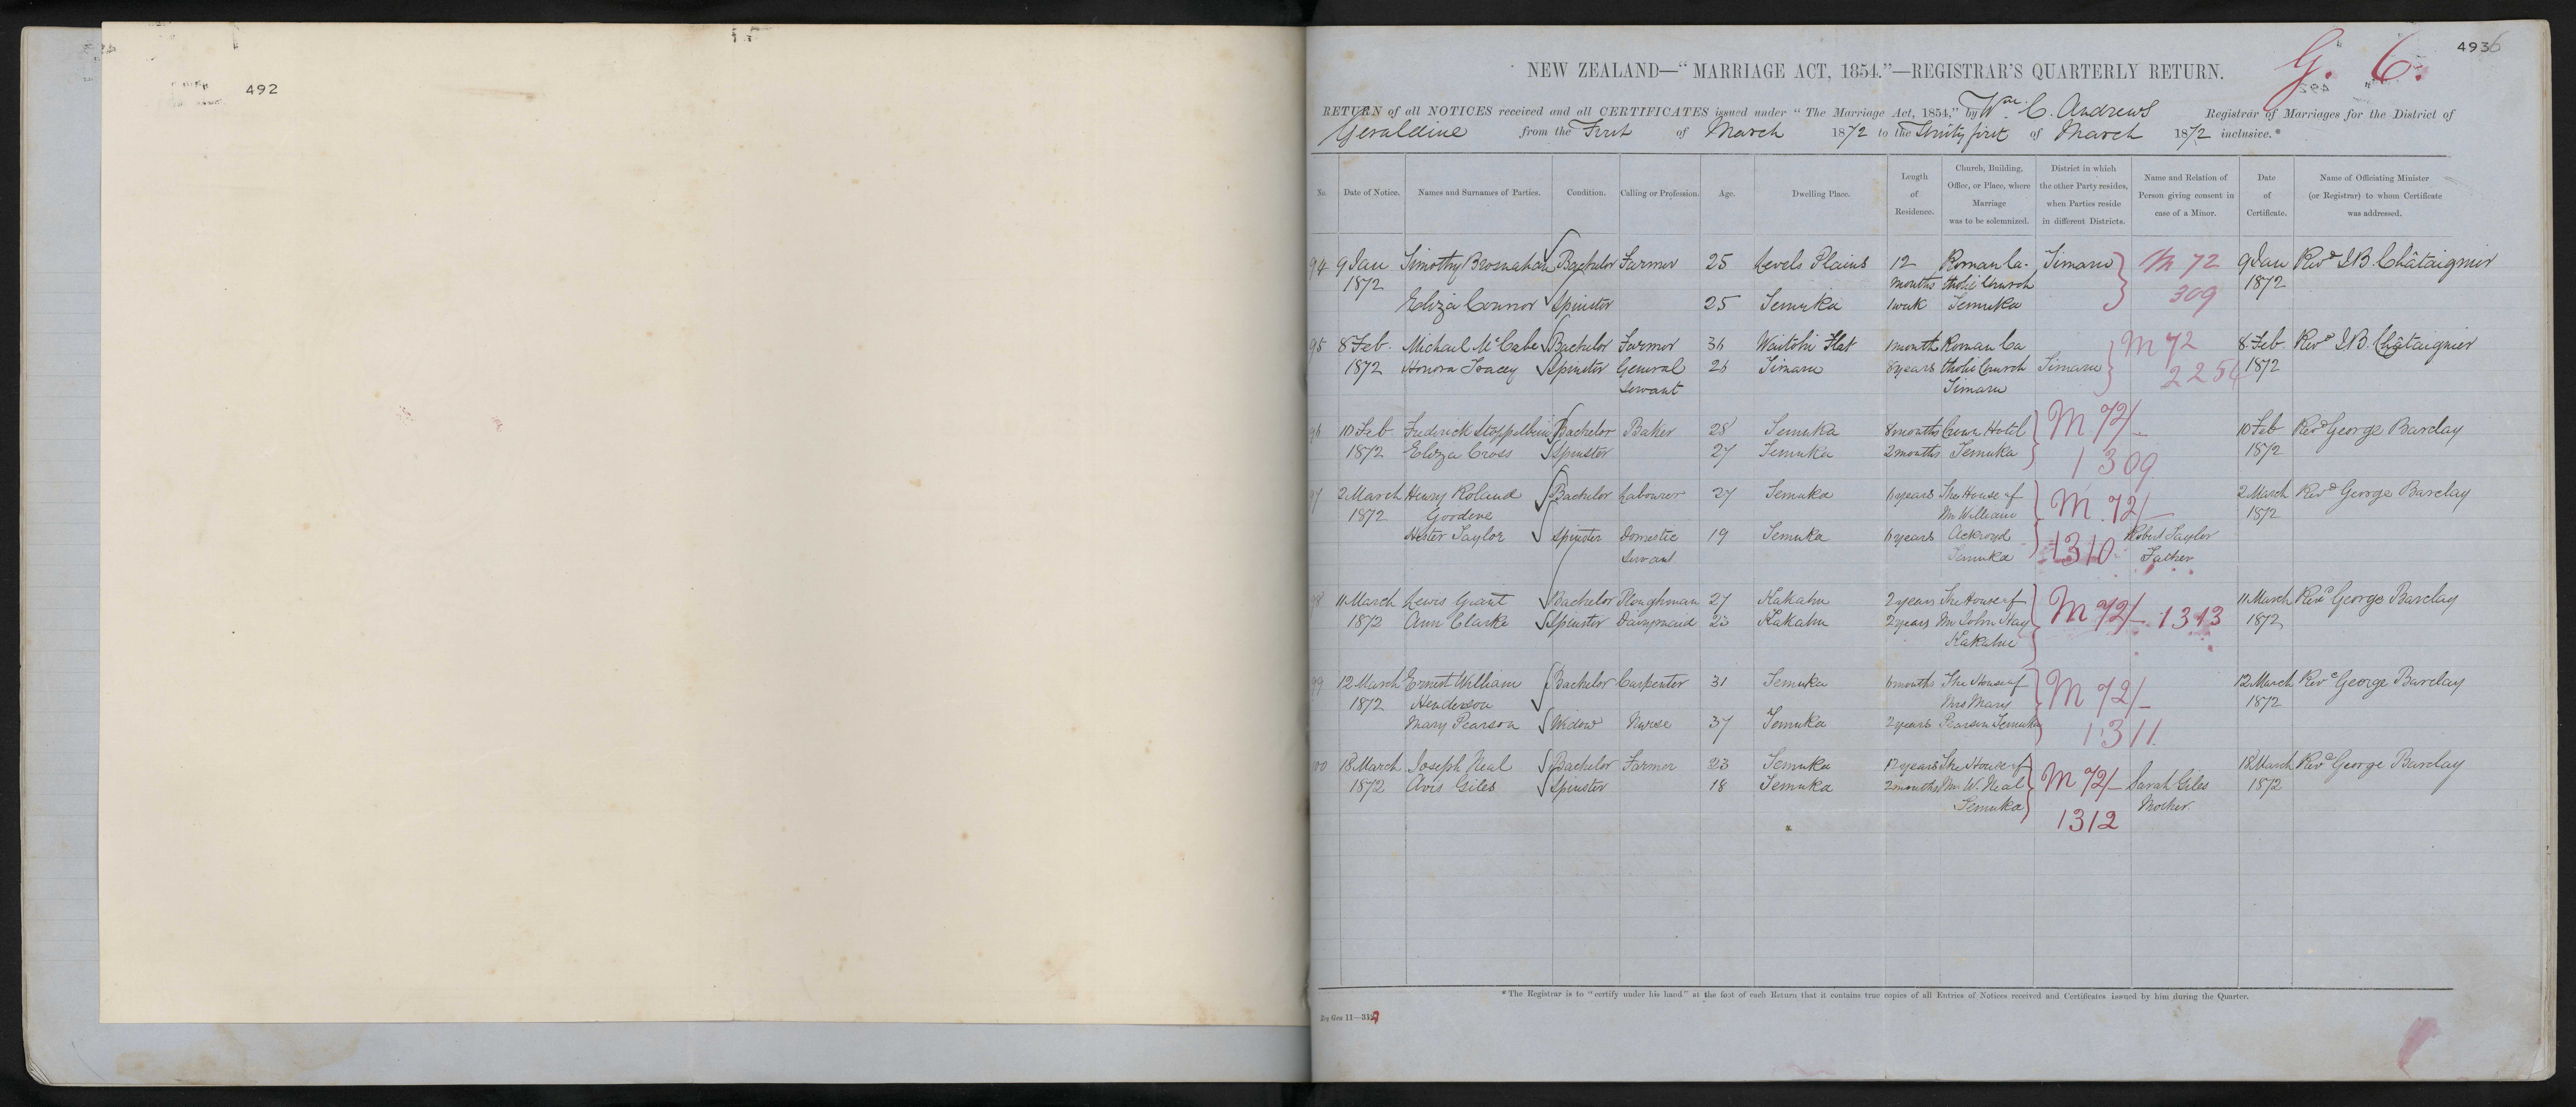 492
4936
G. 6.
NEW ZEALAND—“MARRIAGE ACT, 1854.”—REGISTRAR'S QUARTERLY RETURN.
RETURN of all NOTICES received and all CERTIFICATES issued under “The Marriage Act, 1854,” by Wm. C. Andrews Registrar of Marriages for the District of
Geraldine from the First of March 1872 to the Thirty first of March 1872 inclusive.*
No. Date of Notice. Names and Surnames of Parties. Condition. Calling or Profession. Age. Dwelling Place. Length of Residence. Church, Building, Office, or Place, where Marriage was to be solemnized. District in which the other Party resides, when Parties reside in different Districts. Name and Relation of Person giving consent in case of a Minor. Date of Certificate. Name of Officiating Minister (or Registrar) to whom Certificate was addressed.
94 9 Jan Timothy Brosnahan Bachelor Farmer 25 Levels Plains 12 Roman Ca- Timaru M 72 9 Jan Revd. I B. Châtaignier
1872 months tholic Church 309 1872
Eliza Connor Spinster 25 Temuka 1 week Temuka
95 8 Feb. Michael McCabe Bachelor Farmer 36 Waitohi Flat 1 month Roman Ca M 72 8 Feb. Revd. I B. Châtaignier
1872 Honora Tracey Spinster General 26 Timaru 8 years tholic Church Timaru 2256 1872
Servant Timaru
96 10 Feb Frederick Stoppelbein Bachelor Baker 28 Temuka 8 months Crown Hotel M 72/- 10 Feb Revd George Barclay
1872 Eliza Cross Spinster 27 Temuka 2 months Temuka 1309 1872
97 2 March Henry Roland Bachelor Labourer 27 Temuka 6 years The House of M 72/- 2 March Revd George Barclay
1872 Goodeve Mr William 1872
Hester Taylor Spinster Domestic 19 Temuka 6 years Ackroyd 1310 Robert Taylor
Servant Temuka Father
98 11 March Lewis Grant Bachelor Ploughman 27 Kakahu 2 years The House of M 72/- 1313 11 March Revd George Barclay
1872 Ann Clarke Spinster Dairymaid 23 Kakahu 2 years Mr John Hay 1872
Kakahu
99 12 March Ernest William Bachelor Carpenter 31 Temuka 6 months The House of M 72/- 12 March Revd George Barclay
1872 Henderson Mrs Mary 1872
Mary Pearson Widow Nurse 37 Temuka 2 years Pearson Temuka 1311
100 18 March Joseph Neal Bachelor Farmer 23 Temuka 12 years The House of M 72/- 18 March Revd George Barclay
1872 Avis Giles Spinster 18 Temuka 2 months Mr W. Neal Sarah Giles 1872
Temuka 1312 Mother.
*The Registrar is to “certify under his hand” at the foot of each Return that it contains true copies of all Entries of Notices received and Certificates issued by him during the Quarter.
Reg Gen 11—